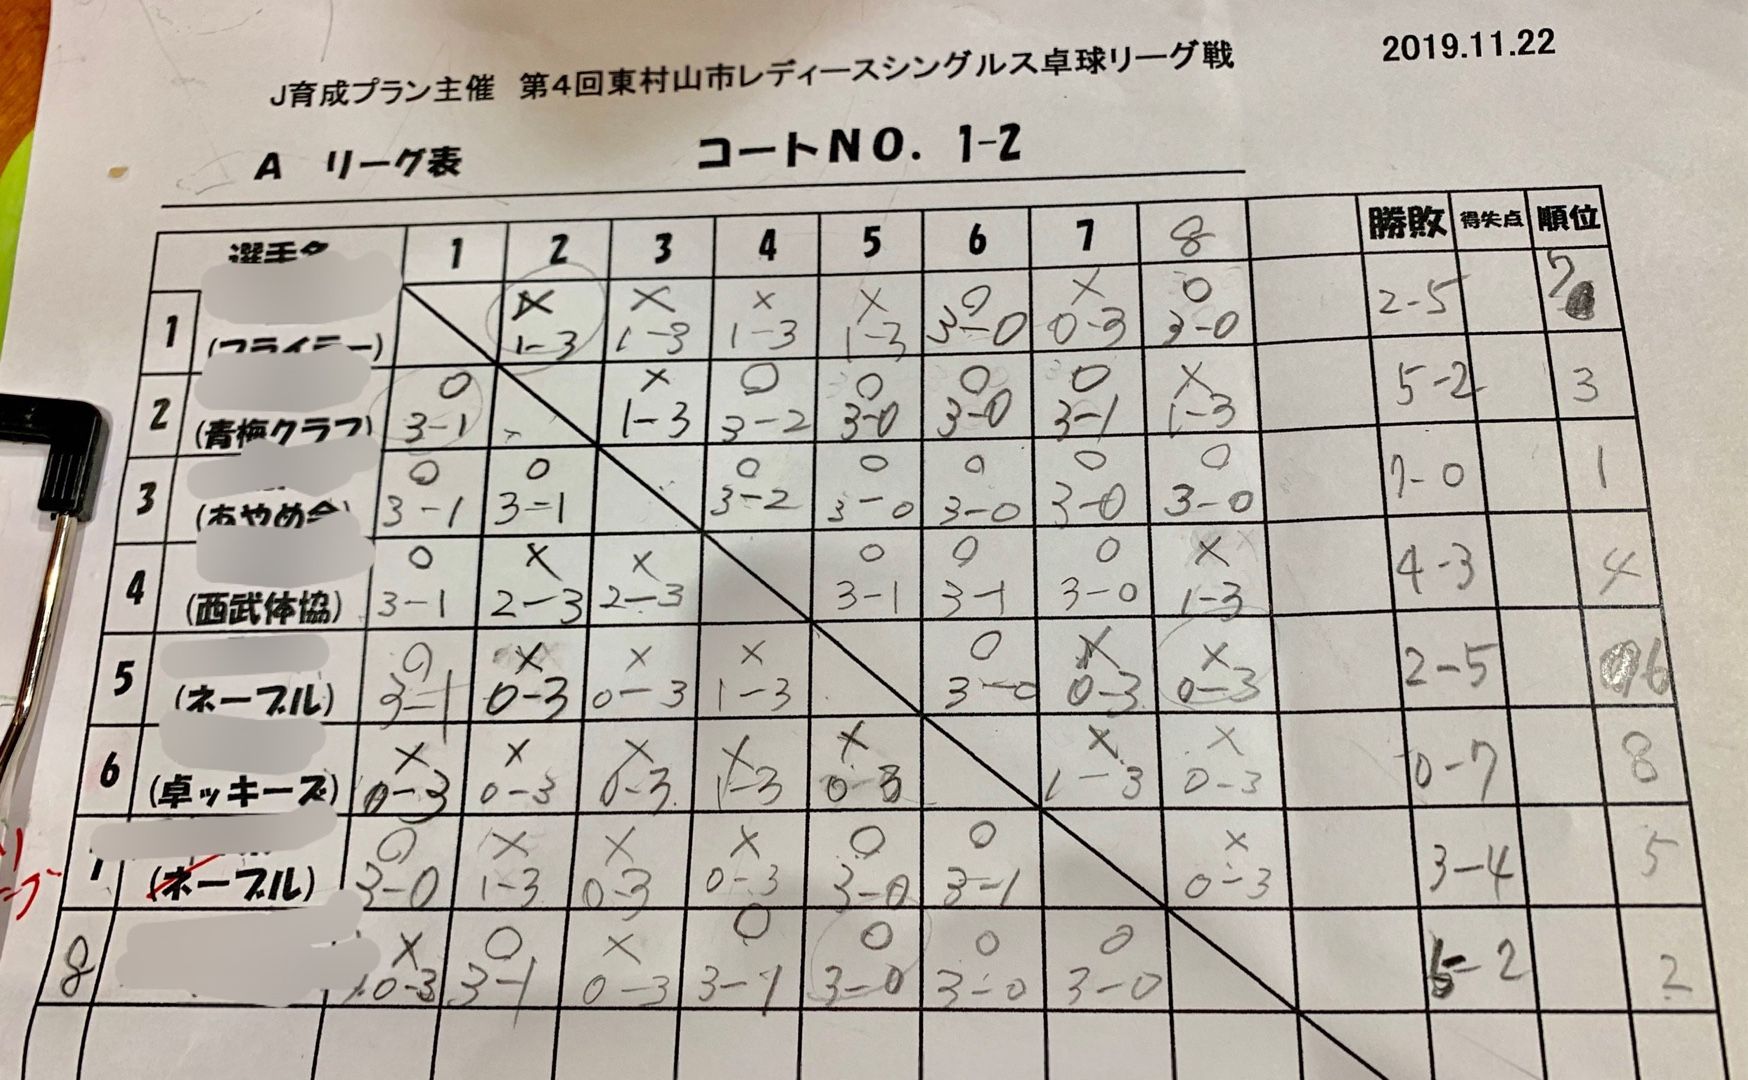 2019.11.22
J育成プラン主催 第4回東村山市レディースシングルス卓球リーグ戦
A リーグ表 コートNO. 1-2
選手名 1 2 3 4 5 6 7 8 勝敗 得失点 順位
1 × × × × ○ × ○ 7
(フライラー) 1-3 1-3 1-3 1-3 3-0 0-3 3-0 2-5
2 ○ × ○ ○ ○ ○ × 5-2 3
(青梅クラブ) 3-1 1-3 3-2 3-0 3-0 3-1 1-3
3 ○ ○ ○ ○ ○ ○ ○ 7-0 1
(あやめ会) 3-1 3-1 3-2 3-0 3-0 3-0 3-0
4 ○ × × ○ ○ ○ × 4-3 4
(西武体協) 3-1 2-3 2-3 3-1 3-1 3-0 1-3
5 ○ × × × ○ × × 2-5 6
(ネーブル) 3-1 0-3 0-3 1-3 3-0 0-3 0-3
6 × × × × × × × 0-7 8
(卓ッキーズ) 0-3 0-3 0-3 1-3 0-3 1-3 0-3
7 ○ × × × ○ ○ × 3-4 5
(ネーブル) 3-0 1-3 0-3 0-3 3-0 3-1 0-3
8 × ○ × ○ ○ ○ ○ 5-2 2
0-3 3-1 0-3 3-1 3-0 3-0 3-0